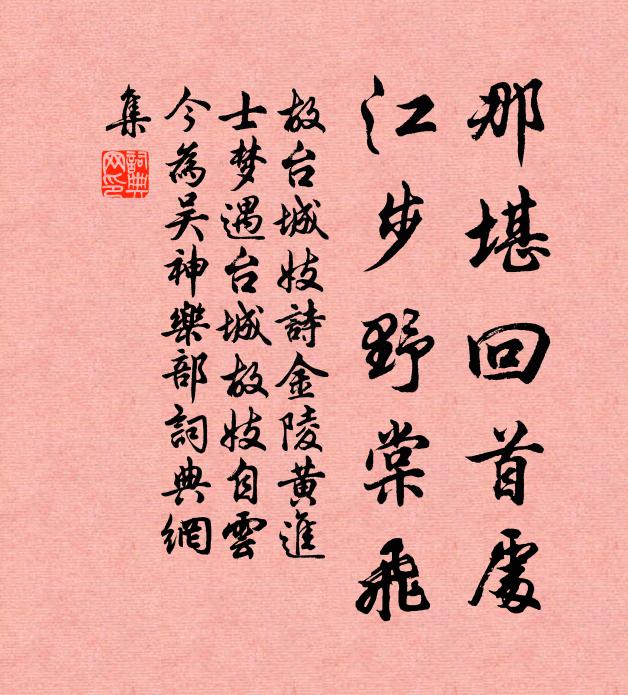 那堪回首處
江步野棠飛
故台城妓詩金陵黃進
士梦遇台城故妓自雲
今為吴神樂部詞典網
集
詞典
网印